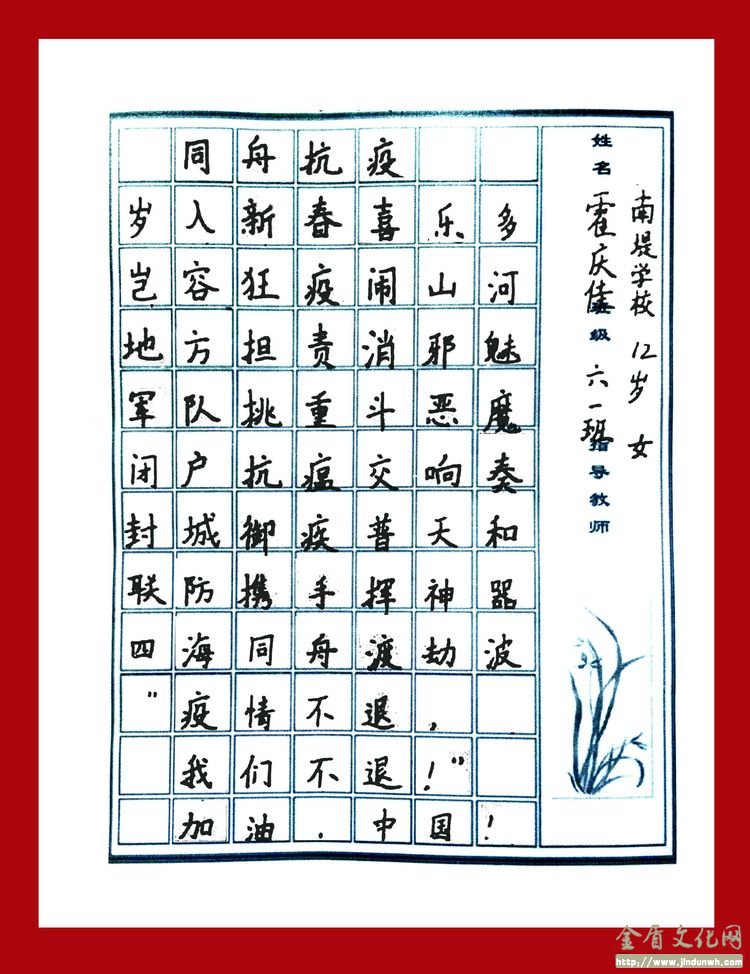 同舟抗疫
岁入新春喜乐多
岂容狂疫闹山河
地方担责消邪魅
军队挑重斗恶魔
闭户抗瘟交响奏
封城御疾普天和
联防携手挥神器
四海同舟渡劫波
"疫情不退，
我们不退！"
加油．中国！
南堤学校 12岁 女
姓名 霍庆佳
班级 六一班
指导教师
金盾文化网
http://www.jindunwh.com